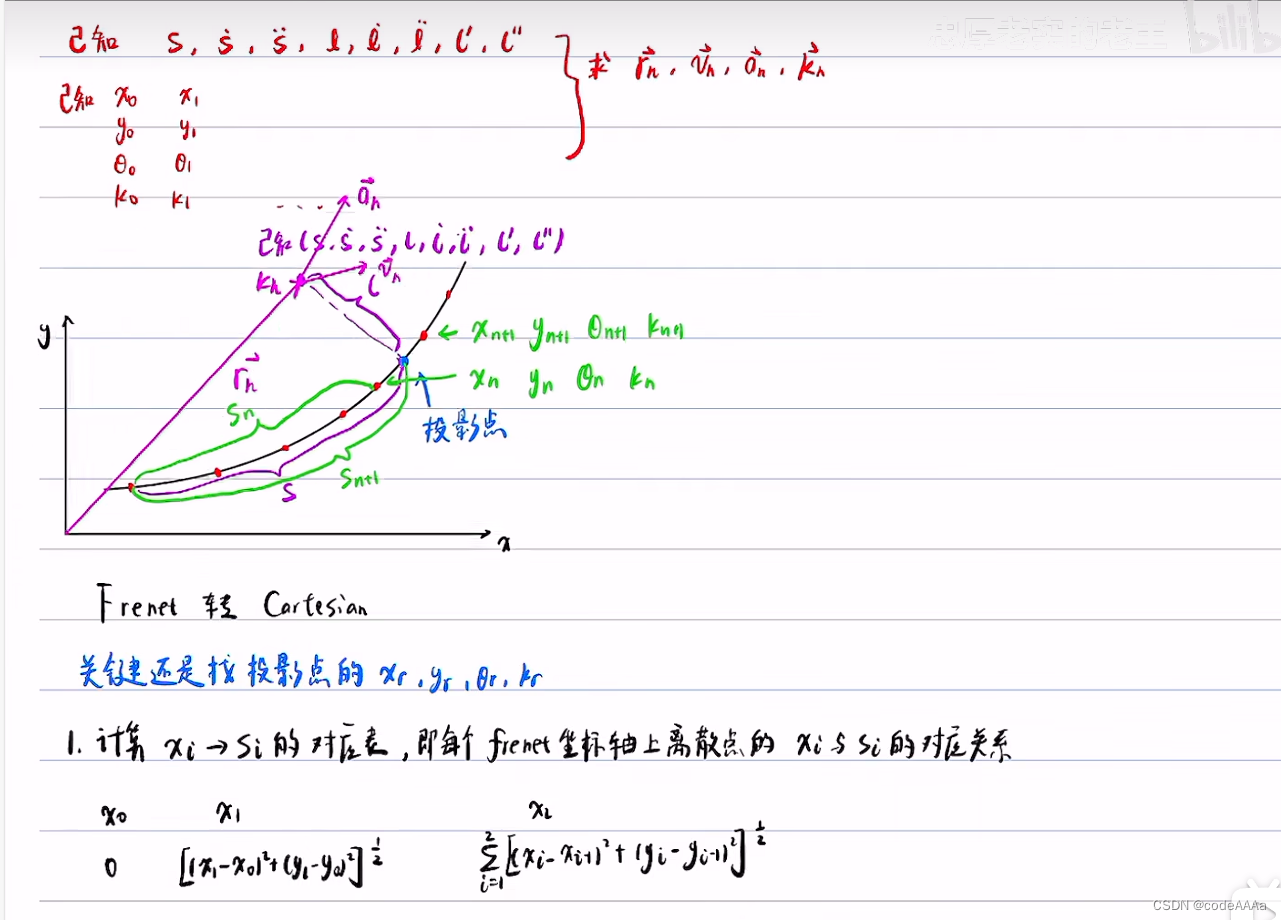 已知 s, ṡ, s̈, l, l̇, l̈, l', l''
求 r⃗ₕ, v⃗ₕ, a⃗ₕ, k⃗ₕ
已知 x₀ x₁
y₀ y₁
θ₀ θ₁
k₀ k₁
...
a⃗ₕ
已知(s, ṡ, s̈, l, l̇, l̈, l', l'')
kₕ
v⃗ₕ
l
y
← xₙ₊₁ yₙ₊₁ θₙ₊₁ kₙ₊₁
r⃗ₕ
← xₙ yₙ θₙ kₙ
sₙ
投影点
sₙ₊₁
s
x
Frenet 转 Cartesian
关键还是找投影点的 xᵣ, yᵣ, θᵣ, kᵣ
1. 计算 xᵢ → sᵢ 的对应表, 即每个 frenet 坐标轴上离散点的 xᵢ 与 sᵢ 的对应关系
x₀ x₁ x₂
0 [(x₁-x₀)²+(y₁-y₀)²]^½ Σ_{i=1}^{2} [(xᵢ-xᵢ₋₁)²+(yᵢ-yᵢ₋₁)²]^½
CSDN @codeAAAa